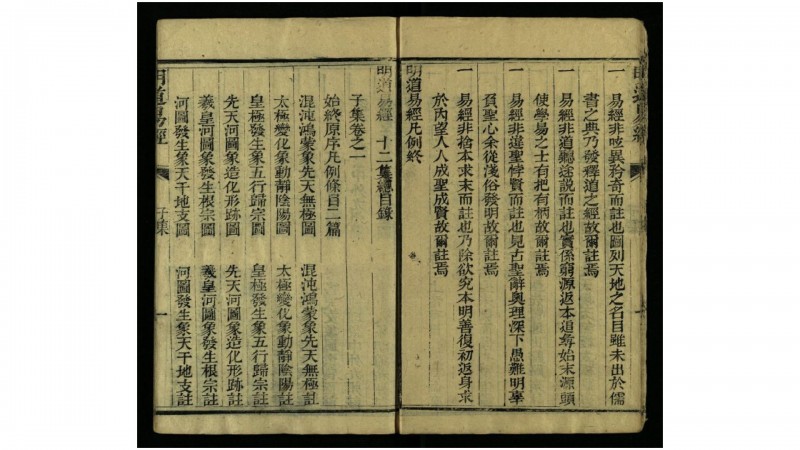 一易經非咬異矜奇而註也圖列天地之名目雖未出於儒
書之典乃發釋道之經故爾註焉
一易經非道聽途說而註也實係窮源返本道尋始末源頭
使學易之士有把有柄故爾註焉
一易經非違聖悖賢而註也見古聖辭奧理深下愚難明辜
負聖心余從淺俗發明故爾註焉
一易經非捨本求末而註也乃除欲究本明善復初返身求
於內望人人成聖成賢故爾註焉
明道易經凡例終
明道易經 十二集總目錄
子集卷之一
始終原序凡例條目二篇
混沌鴻蒙象先天無極圖 混沌鴻蒙象先天無極註
太極變化象動靜陰陽圖 太極變化象動靜陰陽註
皇極發生象五行歸宗圖 皇極發生象五行歸宗註
先天河圖象造化形跡圖 先天河圖象造化形跡註
羲皇河圖象發生根宗圖 羲皇河圖象發生根宗註
河圖發生象天干地支圖 河圖發生象天干地支註
明道易經 子集 一